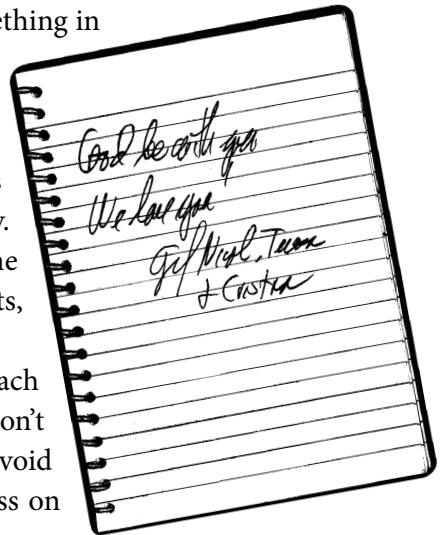 ething in
s
y.
ne
ts,
ach
on't
void
ss on
Good be with you
We love you
Gil, Nicol,
& Cristina